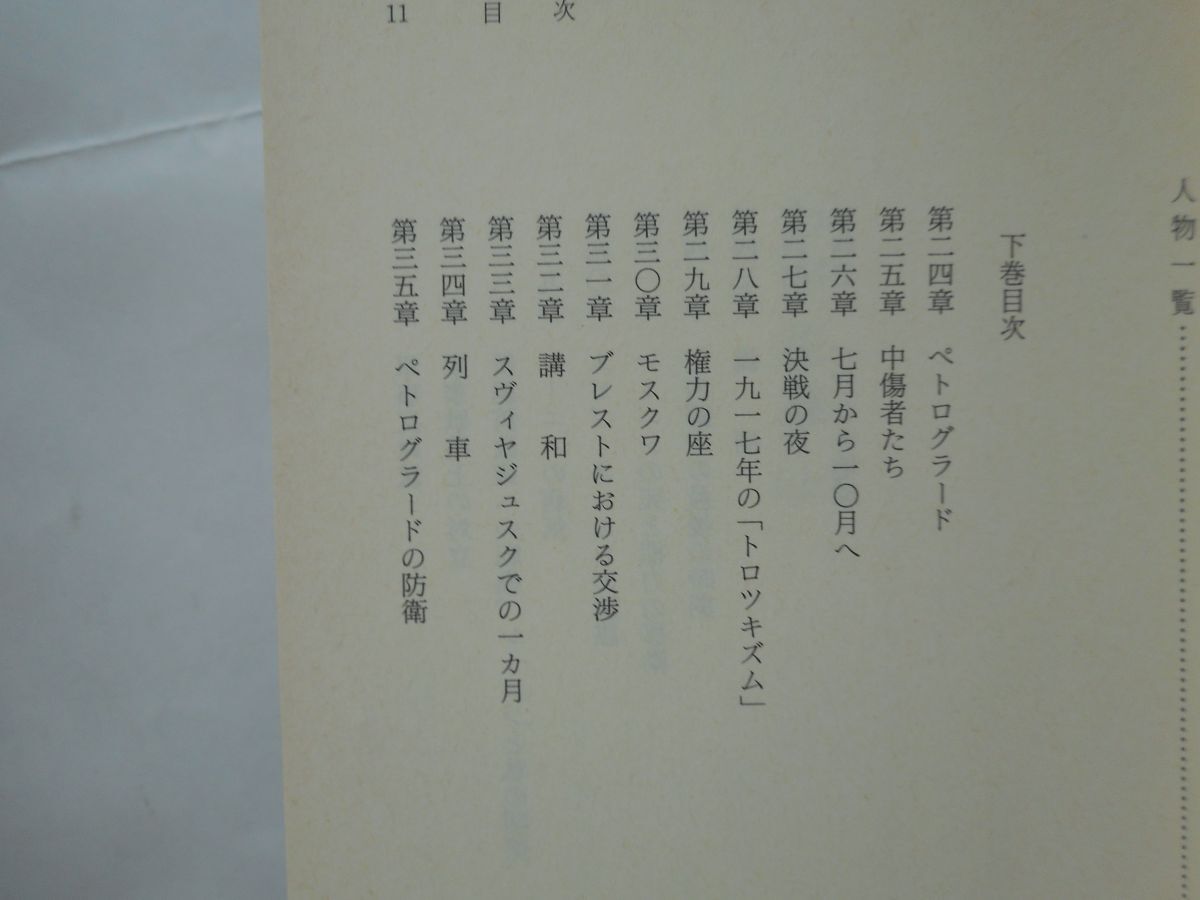 人物一覧
下巻目次
第二四章 ペトログラード
第二五章 中傷者たち
第二六章 七月から一〇月へ
第二七章 決戦の夜
第二八章 一九一七年の「トロツキズム」
第二九章 権力の座
第三〇章 モスクワ
第三一章 ブレストにおける交渉
第三二章 講和
第三三章 スヴィヤジュスクでの一カ月
第三四章 列車
第三五章 ペトログラードの防衛
11 目次